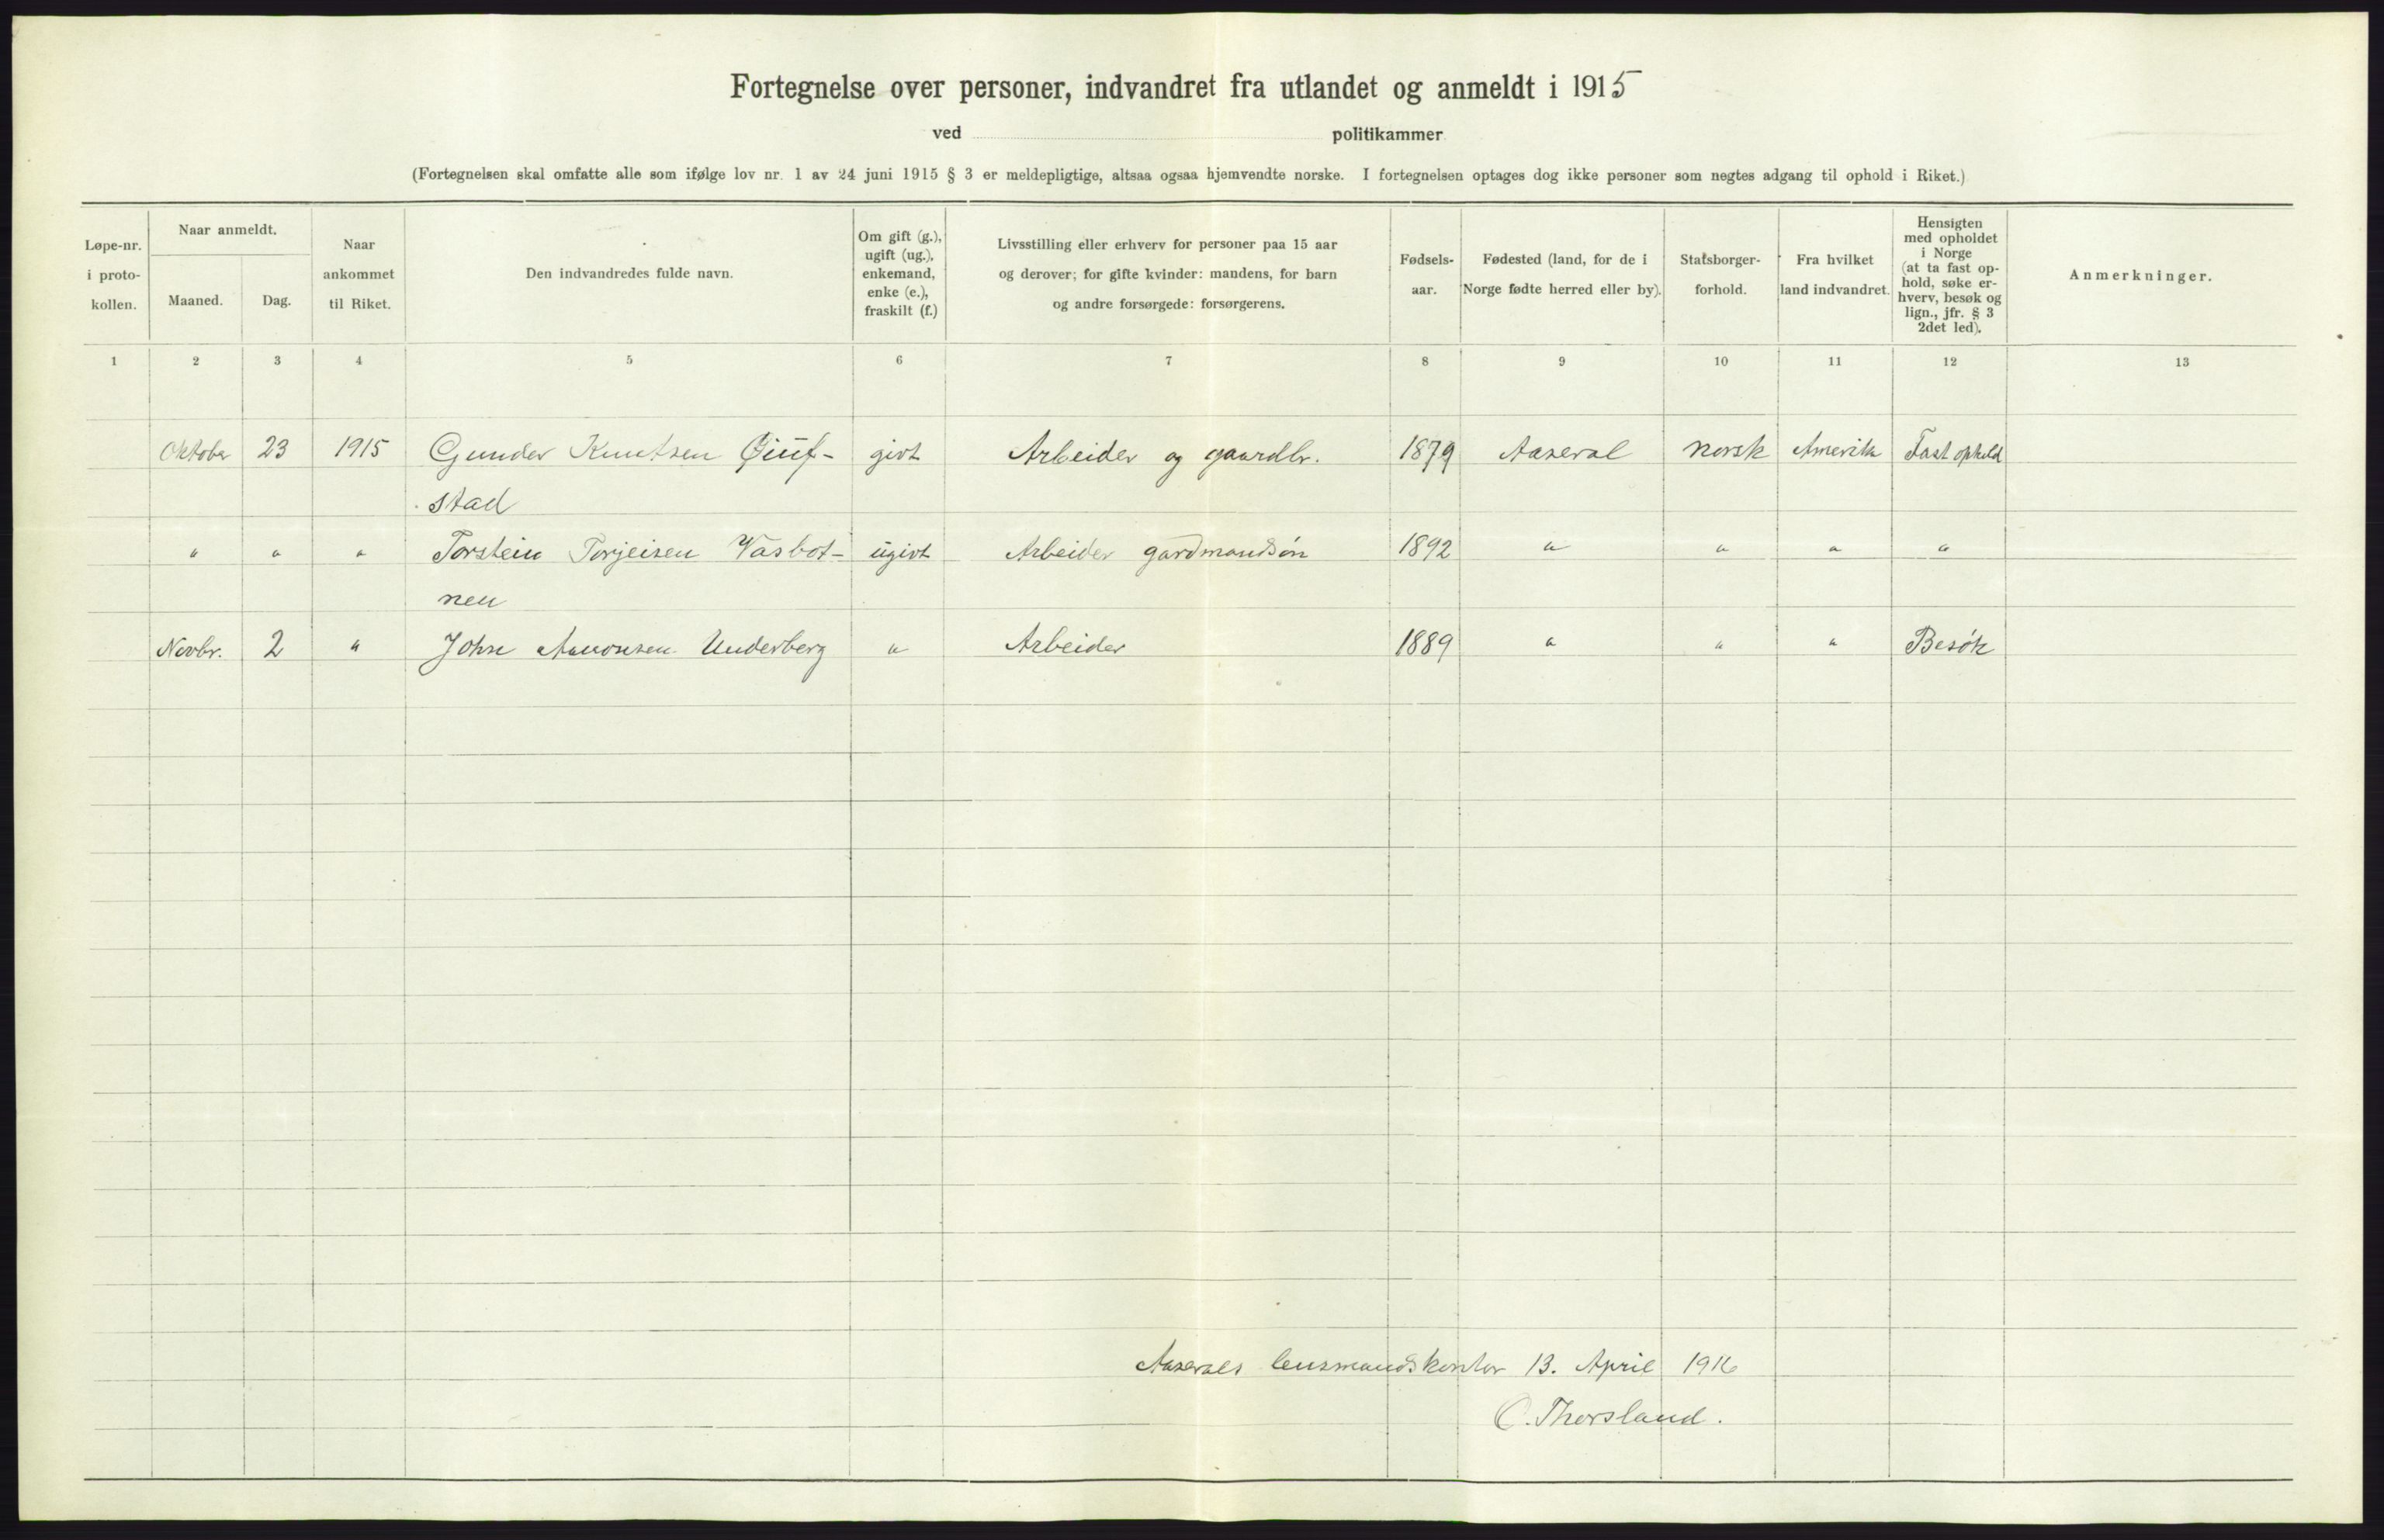 Fortegnelse over personer, indvandret fra utlandet og anmeldt i 1915
ved politikammer
(Fortegnelsen skal omfatte alle som ifølge lov nr. 1 av 24 juni 1915 § 3 er meldepligtige, altsaa ogsaa hjemvendte norske. I fortegnelsen optages dog ikke personer som negtes adgang til ophold i Riket.)
Løpe-nr.
i proto-
kollen.
Naar anmeldt.
Maaned.
Dag.
Naar
ankommet
til Riket.
Den indvandredes fulde navn.
Om gift (g.),
ugift (ug.),
enkemand,
enke (e.),
fraskilt (f.)
Livsstilling eller erhverv for personer paa 15 aar
og derover; for gifte kvinder: mandens, for barn
og andre forsørgede: forsørgerens.
Fødsels-
aar.
Fødested (land, for de i
Norge fødte herred eller by).
Statsborger-
forhold.
Fra hvilket
land indvandret.
Hensigten
med opholdet
i Norge
(at ta fast op-
hold, søke er-
hverv, besøk og
lign., jfr. § 3
2det led).
Anmerkninger.
1 2 3 4 5 6 7 8 9 10 11 12 13
Oktober 23 1915 Gunder Knutsen givt Arbeider og gaardbr. 1879 Aaseral norsk Amerika Fast ophold
stad
" " " Torstein Torjeisen Vasbot- ugivt Arbeider gardmandsøn 1892 " " " "
nen
Novbr. 2 " John Aanonsen Underberg " Arbeider 1889 " " " Besøk
Aaserals lensmandskontor 13. April 1916
O. Thorsland.